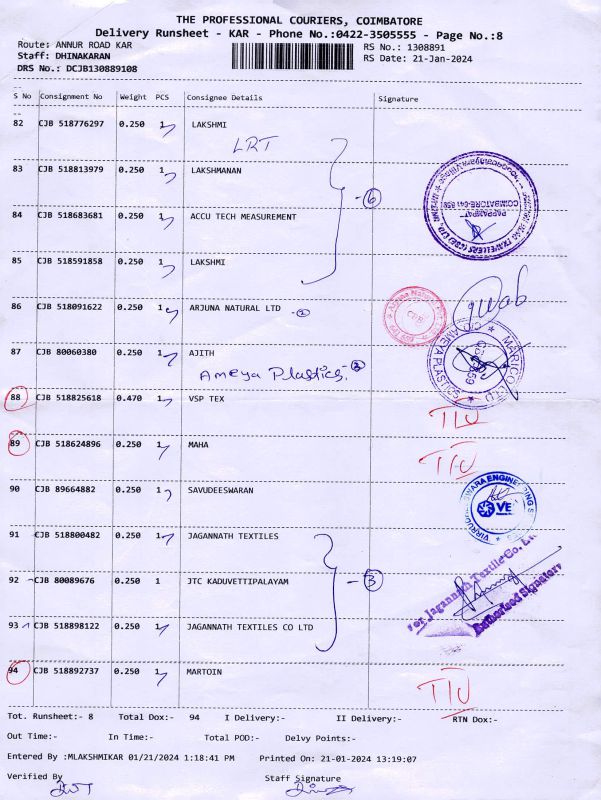 THE PROFESSIONAL COURIERS, COIMBATORE
Delivery Runsheet - KAR - Phone No.:0422-3505555 - Page No.:8
Route: ANNUR ROAD KAR
RS No.: 1308891
Staff: DHINAKARAN
RS Date: 21-Jan-2024
DRS No.: DCJB130889108
S No Consignment No Weight PCS Consignee Details Signature
82 CJB 518776297 0.250 1 LAKSHMI
LRT
83 CJB 518813979 0.250 1 LAKSHMANAN
6
84 CJB 518683681 0.250 1 ACCU TECH MEASUREMENT
PAPPAMPAT
COIMBATORE-641
85 CJB 518591858 0.250 1 LAKSHMI
86 CJB 518091622 0.250 1 ARJUNA NATURAL LTD - 2
Arjuna Natural
CBE
87 CJB 80060380 0.250 1 AJITH
Ameya Plastics. 2
AMEYA PLASTICS
88 CJB 518825618 0.470 1 VSP TEX
TTU
89 CJB 518624896 0.250 1 MAHA
TTU
90 CJB 89664882 0.250 1 SAVUDEESWARAN
VE
91 CJB 518800482 0.250 1 JAGANNATH TEXTILES
For Jagannath Textile Co. Ltd
92 CJB 80089676 0.250 1 JTC KADUVETTIPALAYAM
3
Authorised Signatory
93 CJB 518898122 0.250 1 JAGANNATH TEXTILES CO LTD
94 CJB 518892737 0.250 1 MARTOIN
TTU
Tot. Runsheet:- 8 Total Dox:- 94 I Delivery:- II Delivery:- RTN Dox:-
Out Time:- In Time:- Total POD:- Delvy Points:-
Entered By :MLAKSHMIKAR 01/21/2024 1:18:41 PM Printed On: 21-01-2024 13:19:07
Verified By Staff Signature